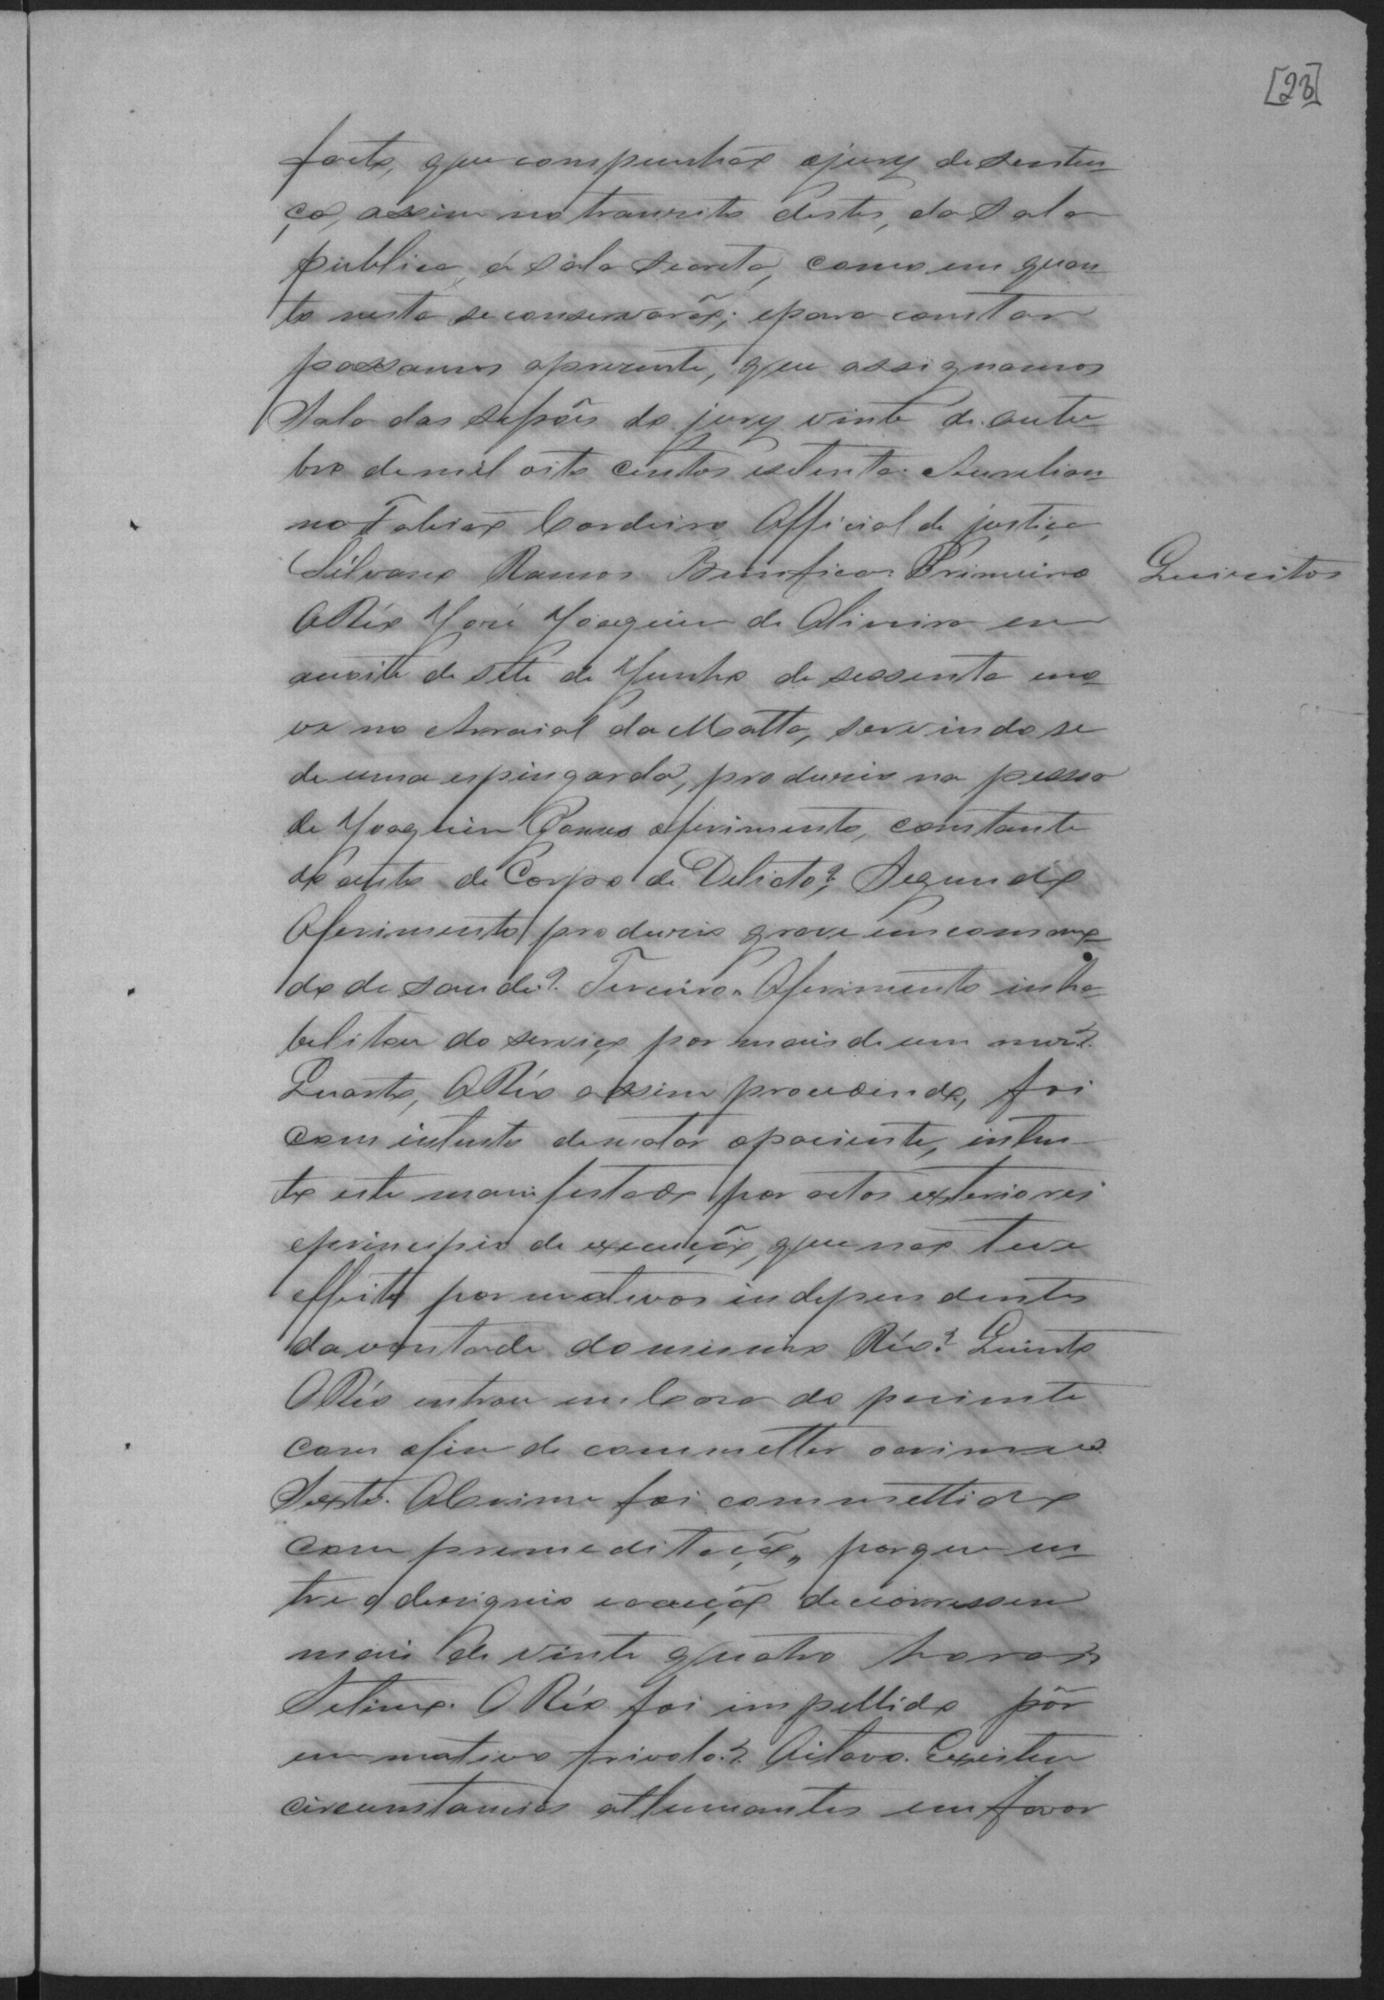 [23]
facto, que compunhão o jury de senten-
ça, assim no transito destes, da Sala
publica, á sala secreta, como em quan-
to nesta se conservarão; e para constar
passamos o presente, que assignamos
Sala das sessões do jury vinte de outu-
bro de mil oito centos e setenta. Aurelian-
no Tobias Cordeiro Official de justiça
Silvano Ramos Bemfica. Primeiro
Quisitos
O Réo José Joaquim de Oliveira em
a noite de sete de Junho de sessenta e no-
ve no Arraial da Matta, servindo se
de uma espingarda, produzio na pessoa
de Joaquim Gomes o ferimento, constante
do auto de Corpo de Delicto? Segundo
O ferimento produzio grave encommo-
do de saude? Terceiro. O ferimento inha-
belitou do serviço por mais de um mez?
Quarto, O Réo assim procedendo, foi
com intento de matar o paciente, inten-
to este manifestado por actos exteriores
e principio de execução, que não teve
effeito por motivos independentes
da vontade do mesmo Réo? Quinto
O Réo entrou em Casa do paciente
com o fim de commetter o crime?
Sexto. O Crime foi commettido
com premeditação, porque en-
tre o designio e a acção decorressem
mais de vinte quatro horas?
Setimo. O Réo foi impellido por
um motivo frivolo? Oitavo. Existem
circumstancias attenuantes em favor